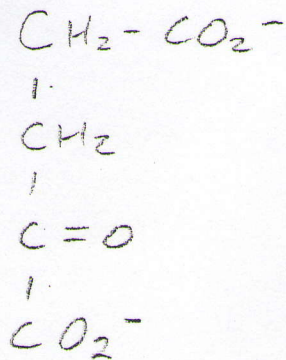 CH₂ - CO₂⁻
CH₂
C=O
CO₂⁻